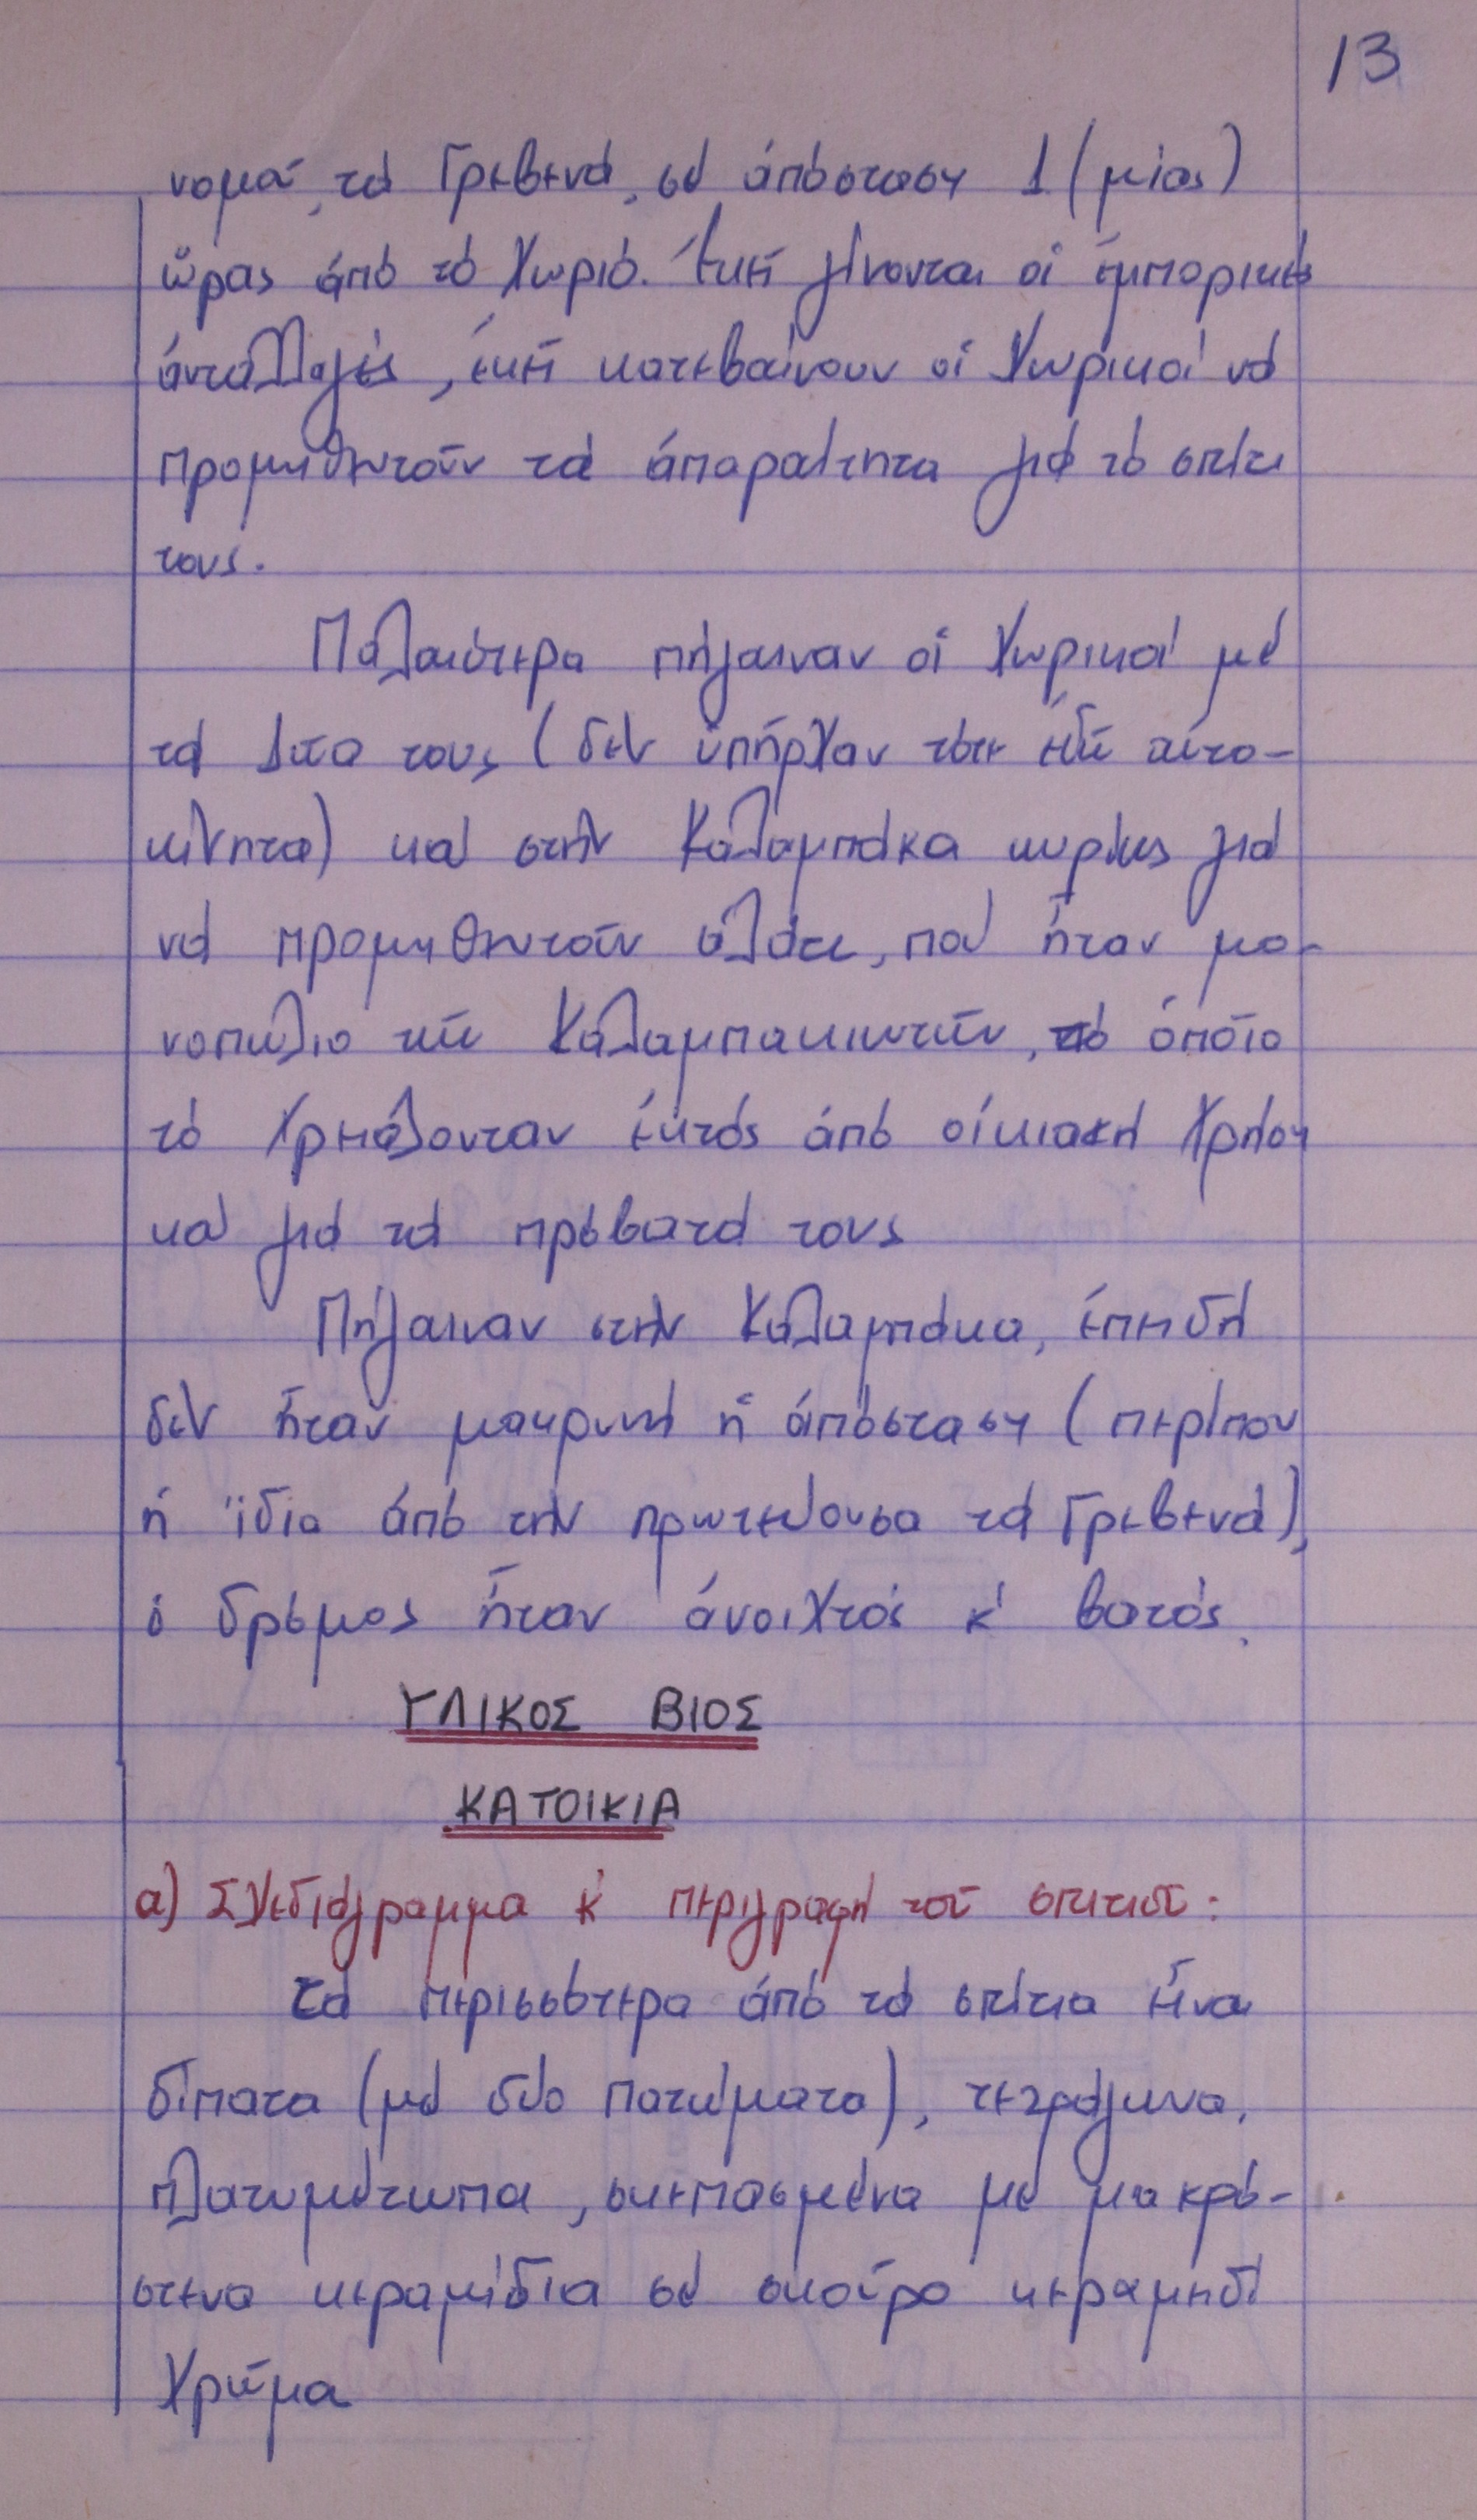 13
νομοῦ, τά Γρεβενά, σέ ἀπόσταση 1 (μίας)
ὥρας ἀπό τό χωριό. Ἐκεῖ γίνονται οἱ ἐμπορικές
ἀνταλλαγές, ἐκεῖ κατεβαίνουν οἱ χωρικοί νά
προμηθευτοῦν τά ἀπαραίτητα γιά τό σπίτι
τους.
Παλαιότερα πήγαιναν οἱ χωρικοί μέ
τά ζῶα τους (δέν ὑπῆρχαν τότε ἐδῶ αὐτο-
κίνητα) καί στήν Καλαμπάκα κυρίως γιά
νά προμηθευτοῦν ἁλάτι, πού ἦταν μο-
νοπώλιο τῶν Καλαμπακιωτῶν, τό ὁποῖο
τό χρειάζονταν ἐκτός ἀπό οἰκιακή χρήση
καί γιά τά πρόβατά τους
Πήγαιναν στήν Καλαμπάκα, ἐπειδή
δέν ἦταν μακρυνή ἡ ἀπόσταση (περίπου
ἡ ἴδια ἀπό τήν πρωτεύουσα τά Γρεβενά),
ὁ δρόμος ἦταν ἀνοιχτός κ' βατός.
ΥΛΙΚΟΣ ΒΙΟΣ
ΚΑΤΟΙΚΙΑ
α) Σχεδιάγραμμα κ' περιγραφή τοῦ σπιτιοῦ:
Τά περισσότερα ἀπό τά σπίτια εἶναι
δίπατα (μέ δύο πατώματα), τετράγωνα,
πλατυμέτωπα, σκεπασμένα μέ μακρό-
στενα κεραμίδια σέ σκοῦρο κεραμηδί
χρῶμα